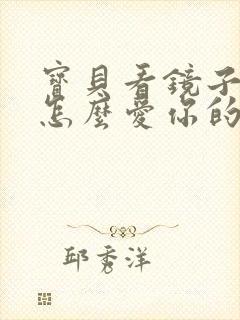 寶貝看鏡子
怎麼愛你的
邱秀洋